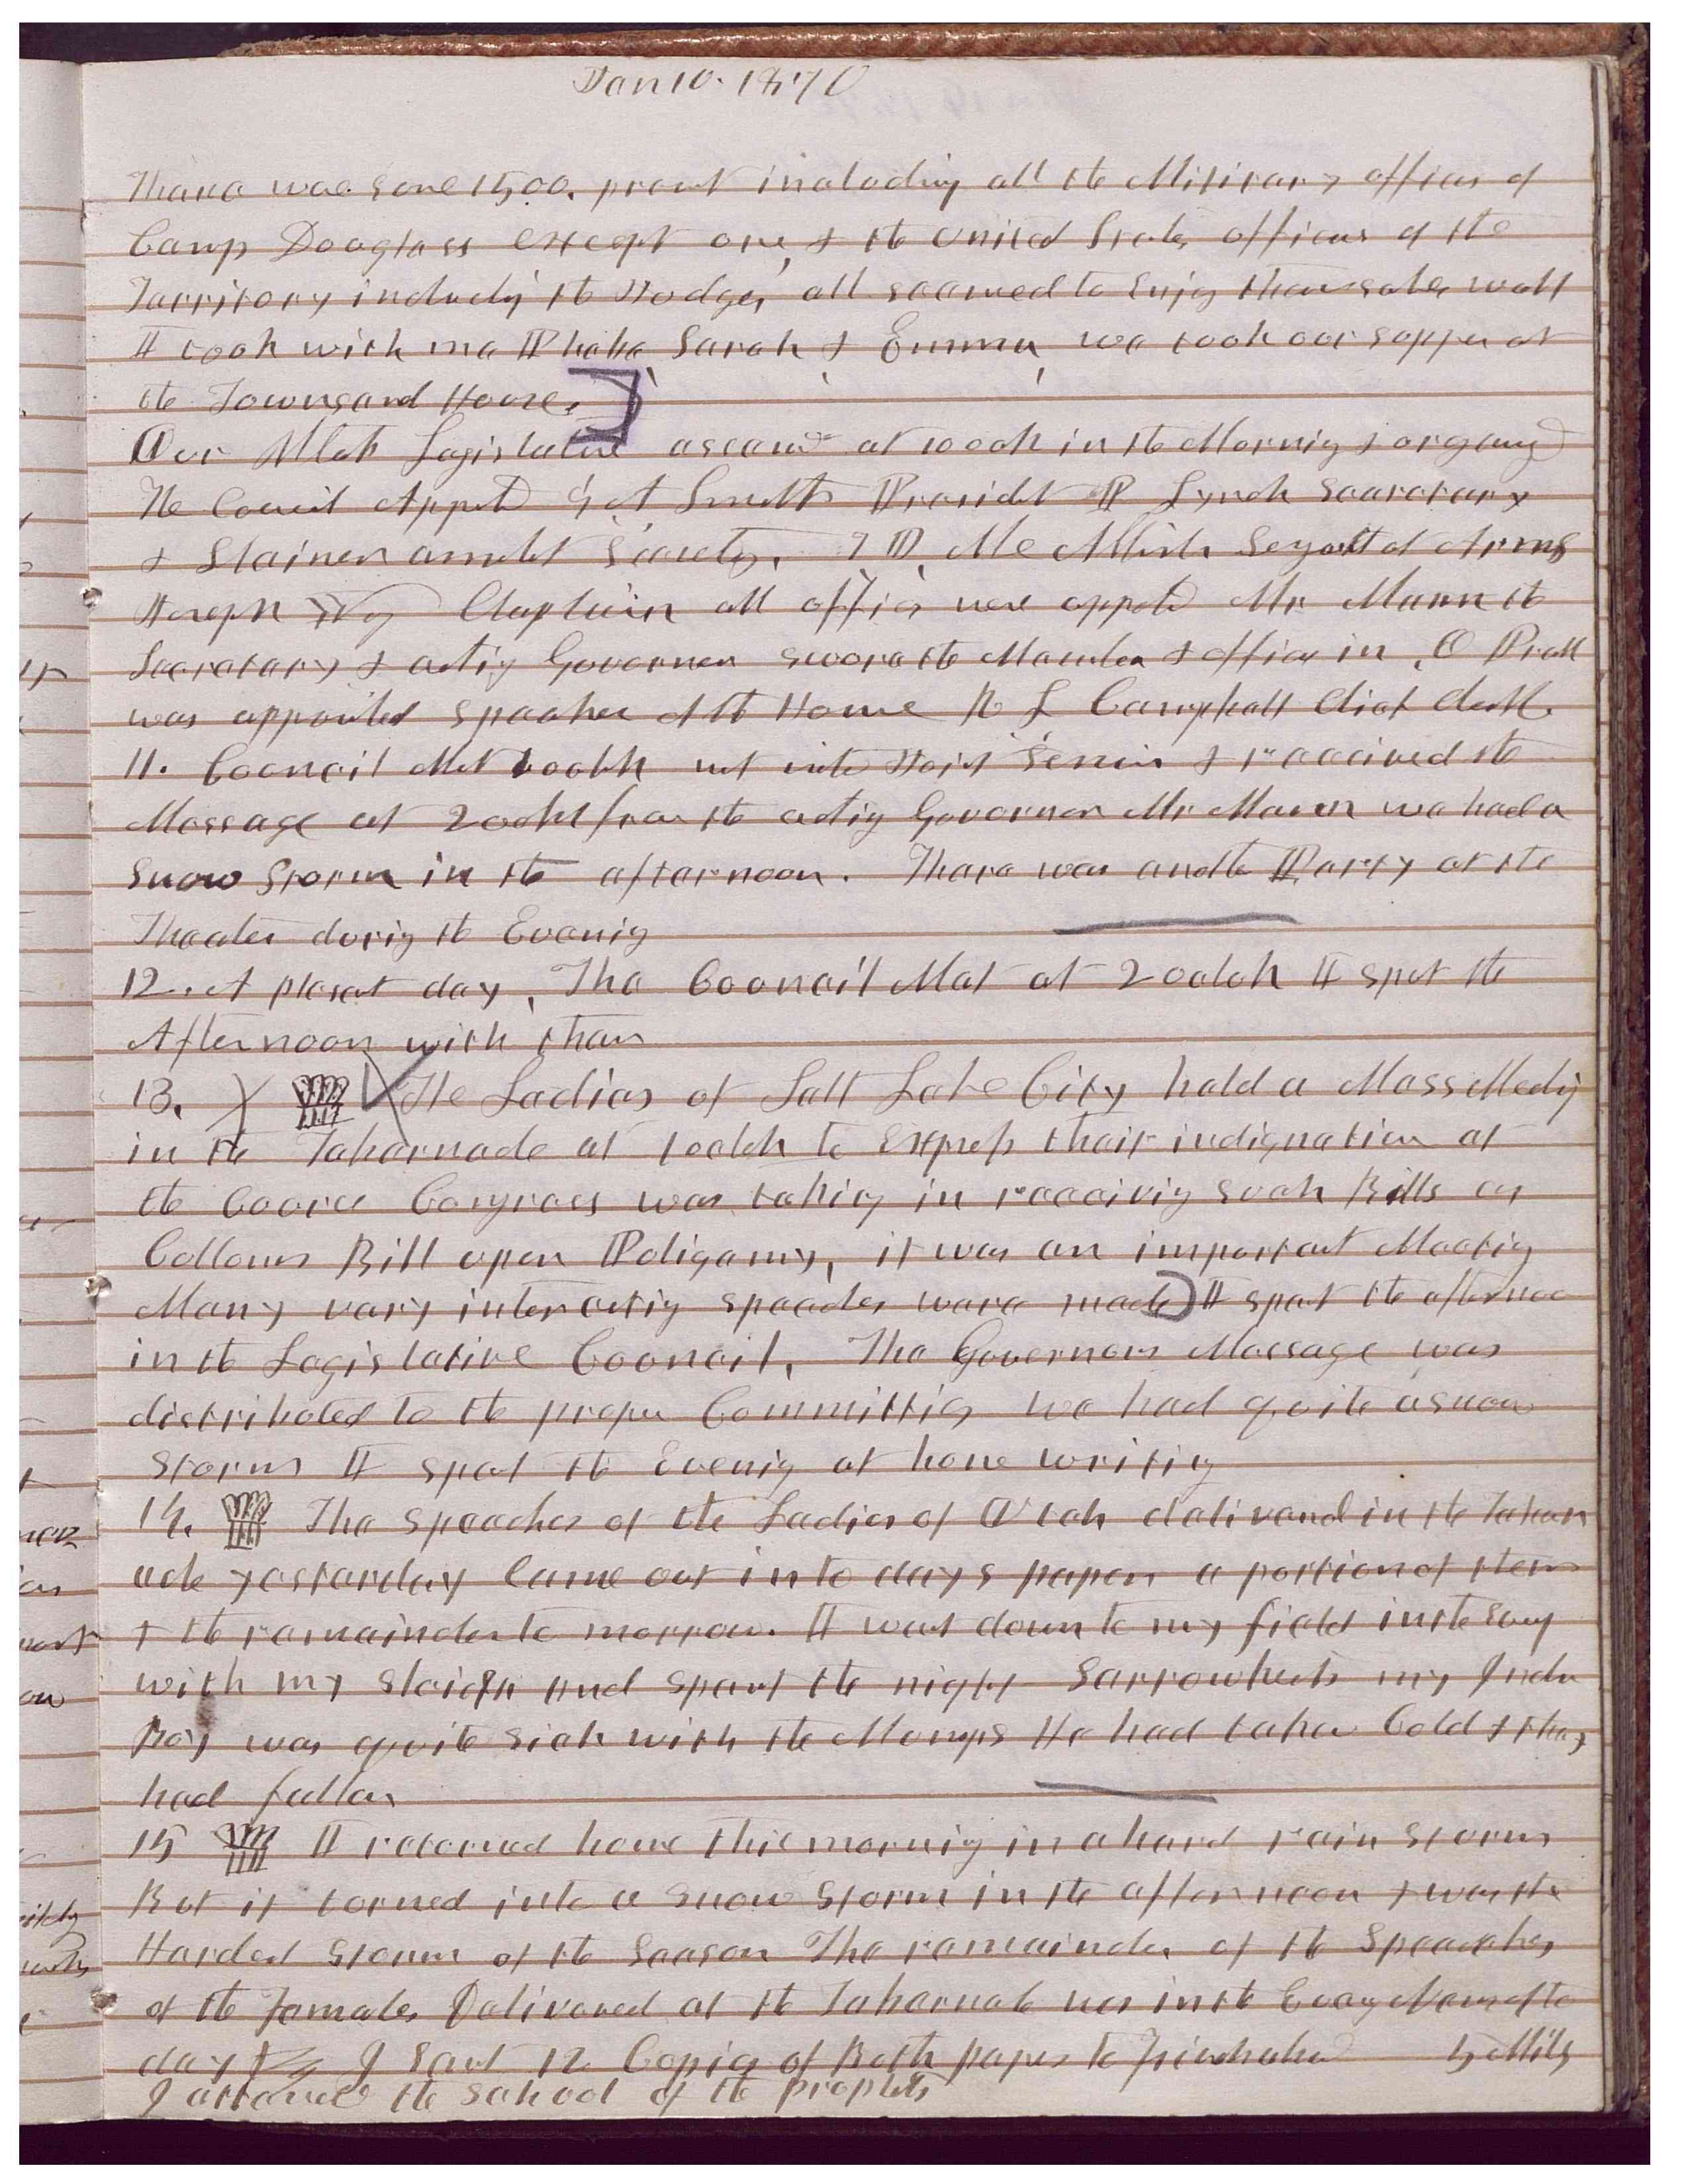 Jan 10. 1870
There was some 1500. present including all the Military officers of
Camp Dooglass except one, & the United States officers of the
Territory includig the Judges, all seemed to Enjoy themselves well
I took with me Phebe, Sarah & Emma, we took our supper at
the Townsend House.
Our Utah Legislature at 10 oclk in the Mornig & organized
The Council Appntd G A Smith President P Lynch Secretary
& Stainer Secrety, Sergent at Arms
Joseph Chaplain all offices were appntd Mr Mann the
Secretary & actig Governor swore the Members & offices in, O Pratt
was appointed Speaker of the House R L Campbell Chief Clerk.
11. Council Met oclok met into Joint Session & received the
Message at 2 oclk from the actig Governor Mr Mann we had a
snow storm in the afternoon. There was anothr Party at the
Theater durig the Evenig
12. A plesat day, The Council Met at 2 oclok I spet the
Afternoon with them
13. The Ladies of Salt Lake City held a Mass Meetig
in the Tabernacle at 1 oclok to Express their indignation at
the Cource Congress was takig in receivig such Bills as
Colloms Bill upon Poligamy, it was an important Meetig
Many very interestig speeches were made I spent the afternoon
in the Legislative Council, The Governors Message was
distributed to the proper Committies we had quite a snow
storm I spent the Evenig at home writig
14. The Speeches of the Ladies of Utah deliverd in the Tabern
acle yesterday came out in to days paper a portion of them
& the remainder to morrow. I went down to my field in the
with my sleigh and spent the night Sarrowkeets my Inda
Boy was quite sick with the Momps He had taken Cold & they
had fallen
15 I returned home this mornig in a hard rain storm
But it torned into a snow storm in the afternoon & was the
Hardest storm of the Season The remainder of the Speeches
of the Females Delivered at the Tabernacle was in the Eveng News of to
day I Sent 12 Copies of Both papers to 5 Miles
I attened the school of the prophets